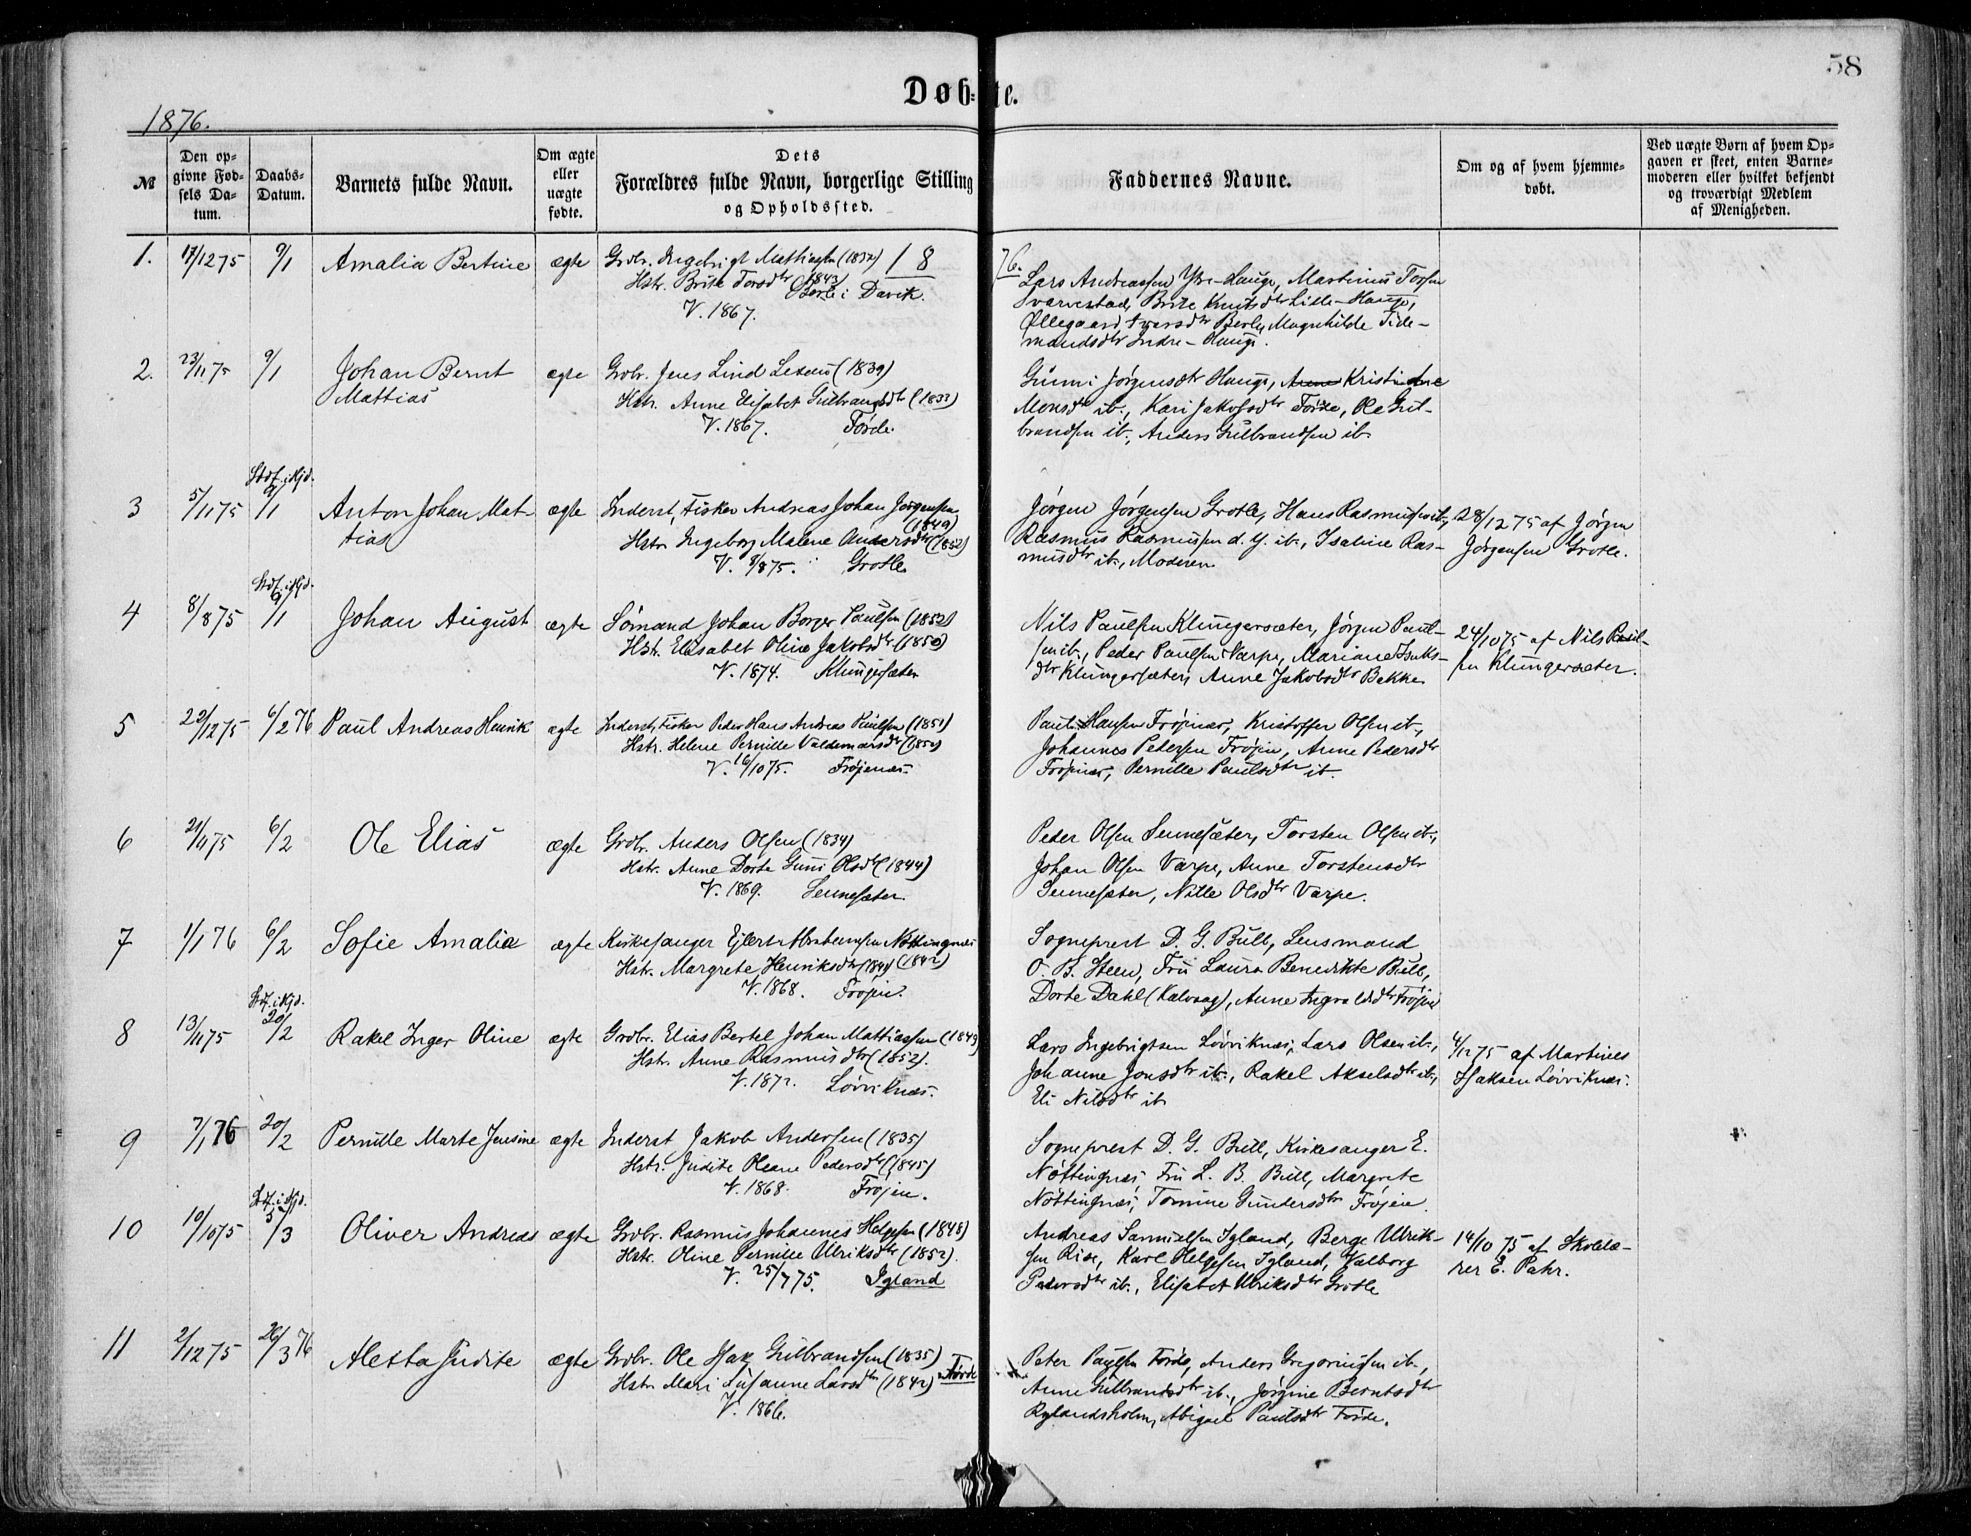 58
Døb= te.
1876.
№
Den op=
givne Fød=
sels Da=
tum.
Daabs=
Datum.
Barnets fulde Navn.
Om ægte
eller
uægte
fødte.
Dets
Forældres fulde Navn, borgerlige Stilling
og Opholdssted.
Faddernes Navne.
Om og af hvem hjemme=
døbt.
Ved uægte Børn af hvem Op=
gaven er skeet, enten Barne=
moderen eller hvilket bekjendt
og troværdigt Medlem
af Menigheden.
18 76.
1. 17/12 75 9/1 Amalia Bertine ægte Grdbr. Ingebrigt Mattiassen (1832)
Hstr. Brite Torsdtr (1843)
Berle i Davik.
V. 1867.
Lars Andreassen Ytre-Hauge, Martinus Torsen
Svarvestad, Brite Knutsdtr Lille-Hauge,
Øllegaard Iversdtr Berle, Magnhilde Tide-
mandsdtr Indre-Hauge.
2. 23/11 75 9/1 Johan Bernt
Mattias
ægte Grdbr. Jens Lind (1839)
Hstr. Anne Elisabet Gulbrandsdtr (1833)
V. 1867. Førde.
Gunni Jørgensdtr Hauge, Anne Kristine
Monsdtr ib., Kari Jakobsdtr Førde, Ole Gul-
brandsen ib., Anders Gulbrandsen ib.
3 5/11 75 Stdf. i Kjd. 9/1 Anton Johan Mat-
tias
ægte Inderst, Fisker Andreas Johan Jørgensen
(1849)
Hstr. Ingeborg Malene Andersdtr (1852)
V. 8/8 75. Grotle
Jørgen Jørgensen Grotle, Hans Rasmussen ib.,
Rasmus Rasmussen d. y. ib., Isabine Ras-
musdtr ib., Moderen
28/12 75 af Jørgen
Jørgensen Grotle.
4 8/8 75 Stdf. i Kjd. 9/1 Johan August ægte Sømand Johan Borger Paulsen (1852)
Hstr. Elisabet Oline Jakobsdtr (1850)
V. 1874. Klungesæter
Nils Paulsen Klungersæter, Jørgen Paul-
sen ib., Peder Paulsen Varpe, Mariane Isaks-
dtr Klungersæter, Anne Jakobsdtr Bakke
24/10 75 af Nils Paul-
sen Klungersæter.
5 22/12 75 6/2 76 Paul Andreas Henrik ægte Inderst, Fisker Peder Hans Andreas Paulsen (1851)
Hstr. Helene Pernille Valdemarsdtr (1850)
V. 16/10 75. Frøjenæs.
Paul Hansen Frøjenæs, Kristoffer Olsen ib.,
Johannes Pedersen Frøjen, Anne Pedersdtr
Frøjenæs, Pernille Paulsdtr ib.
6 21/11 75 6/2 Ole Elias ægte Grdbr. Anders Olsen (1834)
Hstr. Anne Dorte Guni Olsdtr (1844)
V. 1869. Sennesæter.
Peder Olsen Sennesæter, Torsten Olsen ib.,
Johan Olsen Varpe, Anne Torstensdtr
Sennesæter, Nille Olsdtr Varpe.
7 1/1 76 6/2 Sofie Amalia ægte Kirkesanger Ejlert Abrahamsen Nøttingnæs
(1842)
Hstr. Margrete Henriksdtr (1841)
V. 1868. Frøjen.
Sogneprest D. G. Bull, Lensmand
O. B. Steen, Fru Laura Benedikte Bull,
Dorte Dahl (Kalvaag), Anne Ingvoldsdtr Frøjen
8 13/11 75 Stdf. i Kjd. 20/2 Rakel Inger Oline ægte Grdbr. Elias Bertel Johan Mattiassen (1849)
Hstr. Anne Rasmusdtr (1852).
V. 1872. Løvviknæs.
Lars Ingebrigtsen Løvviknæs, Lars Olsen ib.,
Johanne Jonsdtr ib., Rakel Akselsdtr ib.,
Eli Nilsdtr ib.
4/12 75 af Martines
Isaksen Løvviknæs.
9 7/1 76 20/2 Pernille Marte Jensine ægte Inderst Jakob Andersen (1835)
Hstr. Judite Oleane Pedersdtr (1845)
V. 1868. Frøjen.
Sogneprest D. G. Bull, Kirkesanger E.
Nøttingnæs, Fru L. B. Bull, Margrete
Nøttingnæs, Tomine Gundersdtr Frøjen.
10 10/10 75 Stdf. i Kjd. 5/3 Oliver Andreas ægte Grdbr. Rasmus Johannes Helgesen (1848)
Hstr. Oline Pernille Ulriksdtr (1852).
V. 25/7 75. Igland
Andreas Samuelsen Igland, Berge Ulrik-
sen Rise, Karl Helgesen Igland, Valborg
Pedersdtr ib., Elisabet Ulriksdtr Grotle
14/10 75 af Skolelæ-
rer E. Pahr.
11 2/12 75 26/3 76 Aletta Judite ægte Grdbr. Ole Isak Gulbrandsen (1835)
Hstr. Mari Susanne Larsdtr (1842) Førde
V. 1866.
Peter Paulsen Førde, Anders Gregoriussen ib.,
Anne Gulbrandsdtr ib., Jørgine Berntsdtr
Rylandsholm, Abigael Paulsdtr Førde.